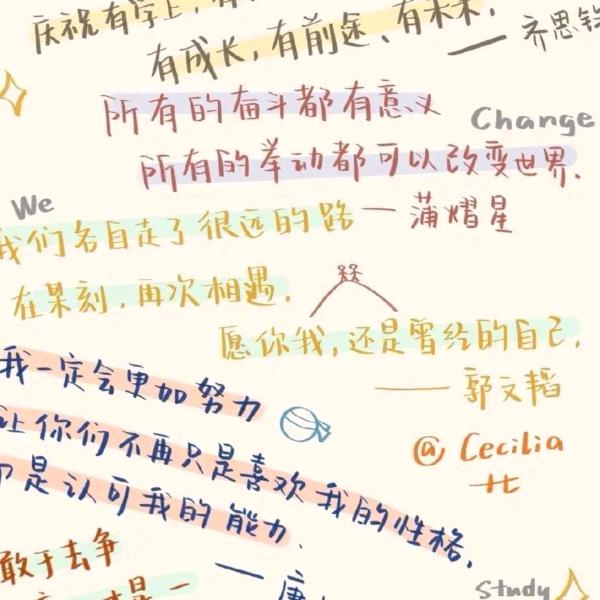 庆祝有学上,有
有成长,有前途、有未来,
—— 齐思钧
所有的奋斗都有意义
Change
所有的举动都可以改变世界.
We
— 蒲熠星
我们各自走了很远的路
在某刻,再次相遇,
愿你我,还是曾经的自己,
—— 郭文韬
我一定会更加努力
让你们不再只是喜欢我的性格,
而是认可我的能力.
@ Cecilia
敢于去争
— 唐
是一
Study